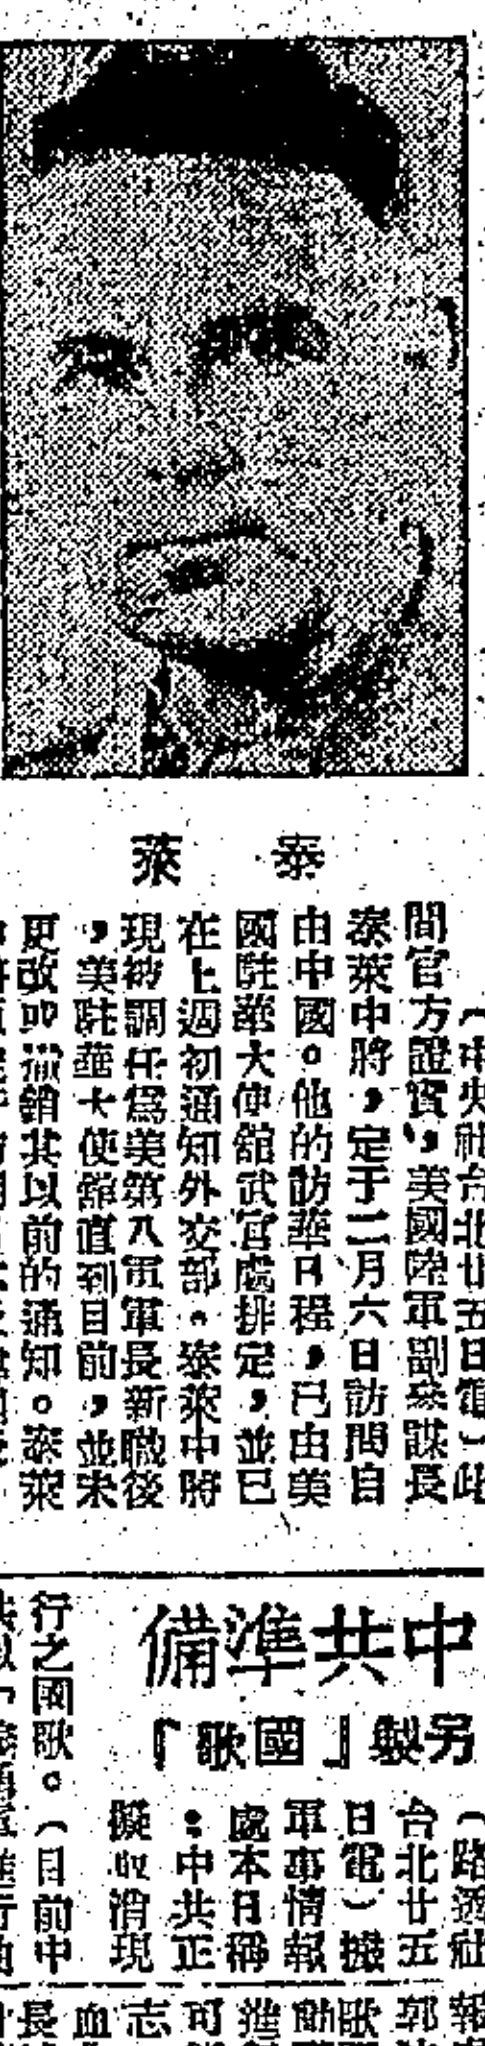 泰萊
（中央社台北廿五日電）此
間官方證實，美國陸軍副參謀長
泰萊中將，定于二月六日訪問自
由中國。他的訪華日程，已由美
國駐華大使舘武官處排定，並已
在上週初通知外交部。泰萊中將
現被調任爲美第八軍軍長新職後
，美駐華大使舘直到目前，並未
更改或撤銷其以前的通知。泰萊
中共準備
另製『國歌』
（路透社
台北廿五
日電）據
軍事情報
處本日稱
：中共正
擬取消現
行之國歌。（目前中